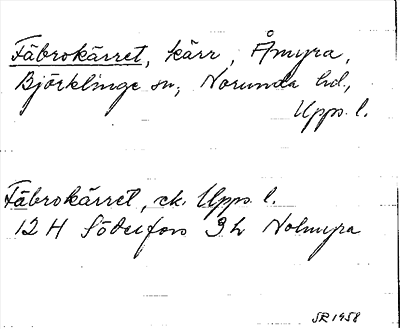 Fäbrokärret, kärr, Åmyra,
Björklinge sn, Norunda hd.,
Upps. l.
Fäbrokärret, ek. Upps. l.
12 H Söderfors 9 h Nolmyra
SR 1958